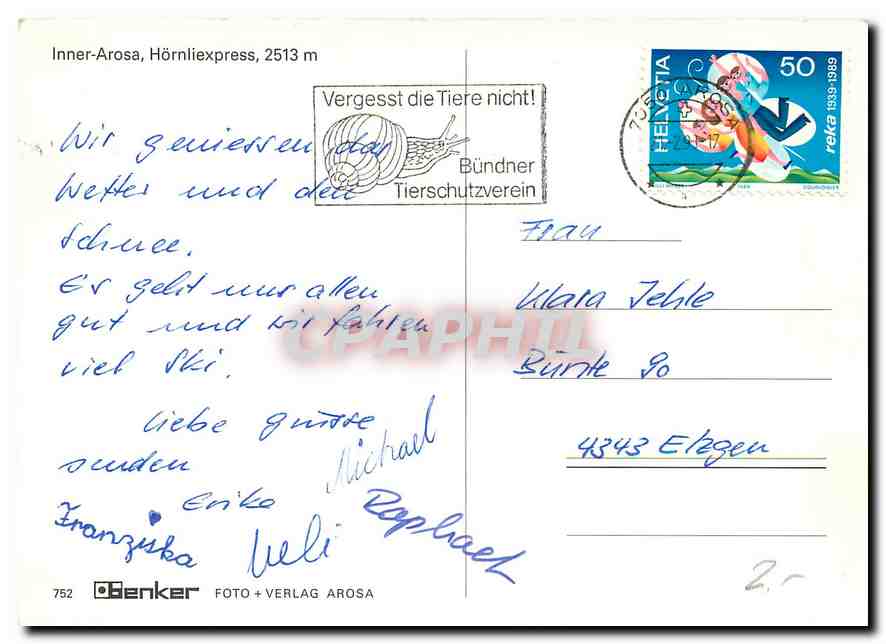 Inner-Arosa, Hörnliexpress, 2513 m
Vergesst die Tiere nicht!
Bündner
Tierschutzverein
HELVETIA
50
reka 1939-1989
7050 AROSA
Wir geniessen das
Wetter und den
Schnee.
Es geht uns allen
gut und wir fahren
viel Ski.
Liebe grüsse
senden
Erika
Michael
Raphael
Franziska
Ueli
Frau
Klara Jehle
Bünte 90
4343 Etzgen
CPAPHIL
752 Benker FOTO + VERLAG AROSA
2.-